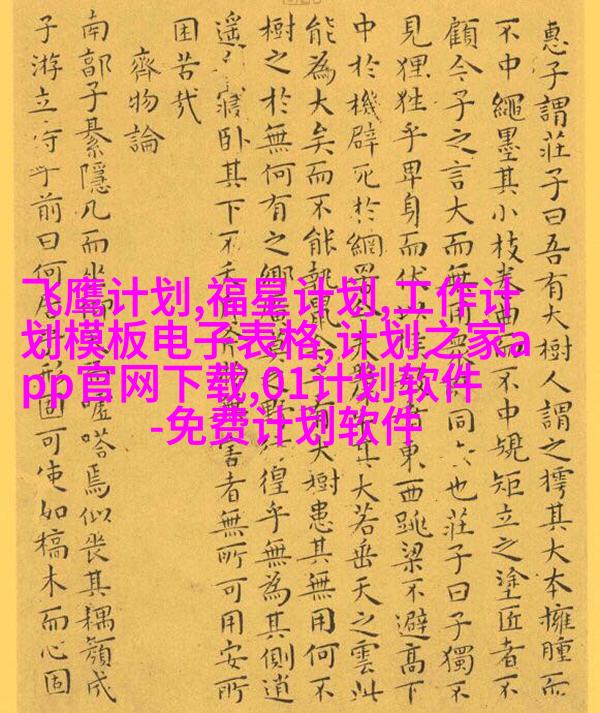 惠子謂莊子曰吾有大樹人謂之樗其大本擁腫而
不中繩墨其小枝卷曲而不中規矩立之塗匠者不
顧今子之言大而無用衆同也莊子曰子獨不
見狸狌乎卑身而伏者東西跳梁不避高下
中於機辟死於網罟其大若垂天之雲此
能為大矣而不能執鼠今子有大樹患其無用何不
樹之於無何有之鄉廣莫之野徨乎無為其側逍
遙寢卧其下不害者無所可用安所
困苦哉
齊物論
南郭子綦隱几而坐而噓嗒焉似喪其耦顏成
子游立侍乎前曰何居形固可使如槁木而心固
飞鹰计划,福星计划,工作计
划模板电子表格,计划之家a
pp官网下载,01计划软件
-免费计划软件